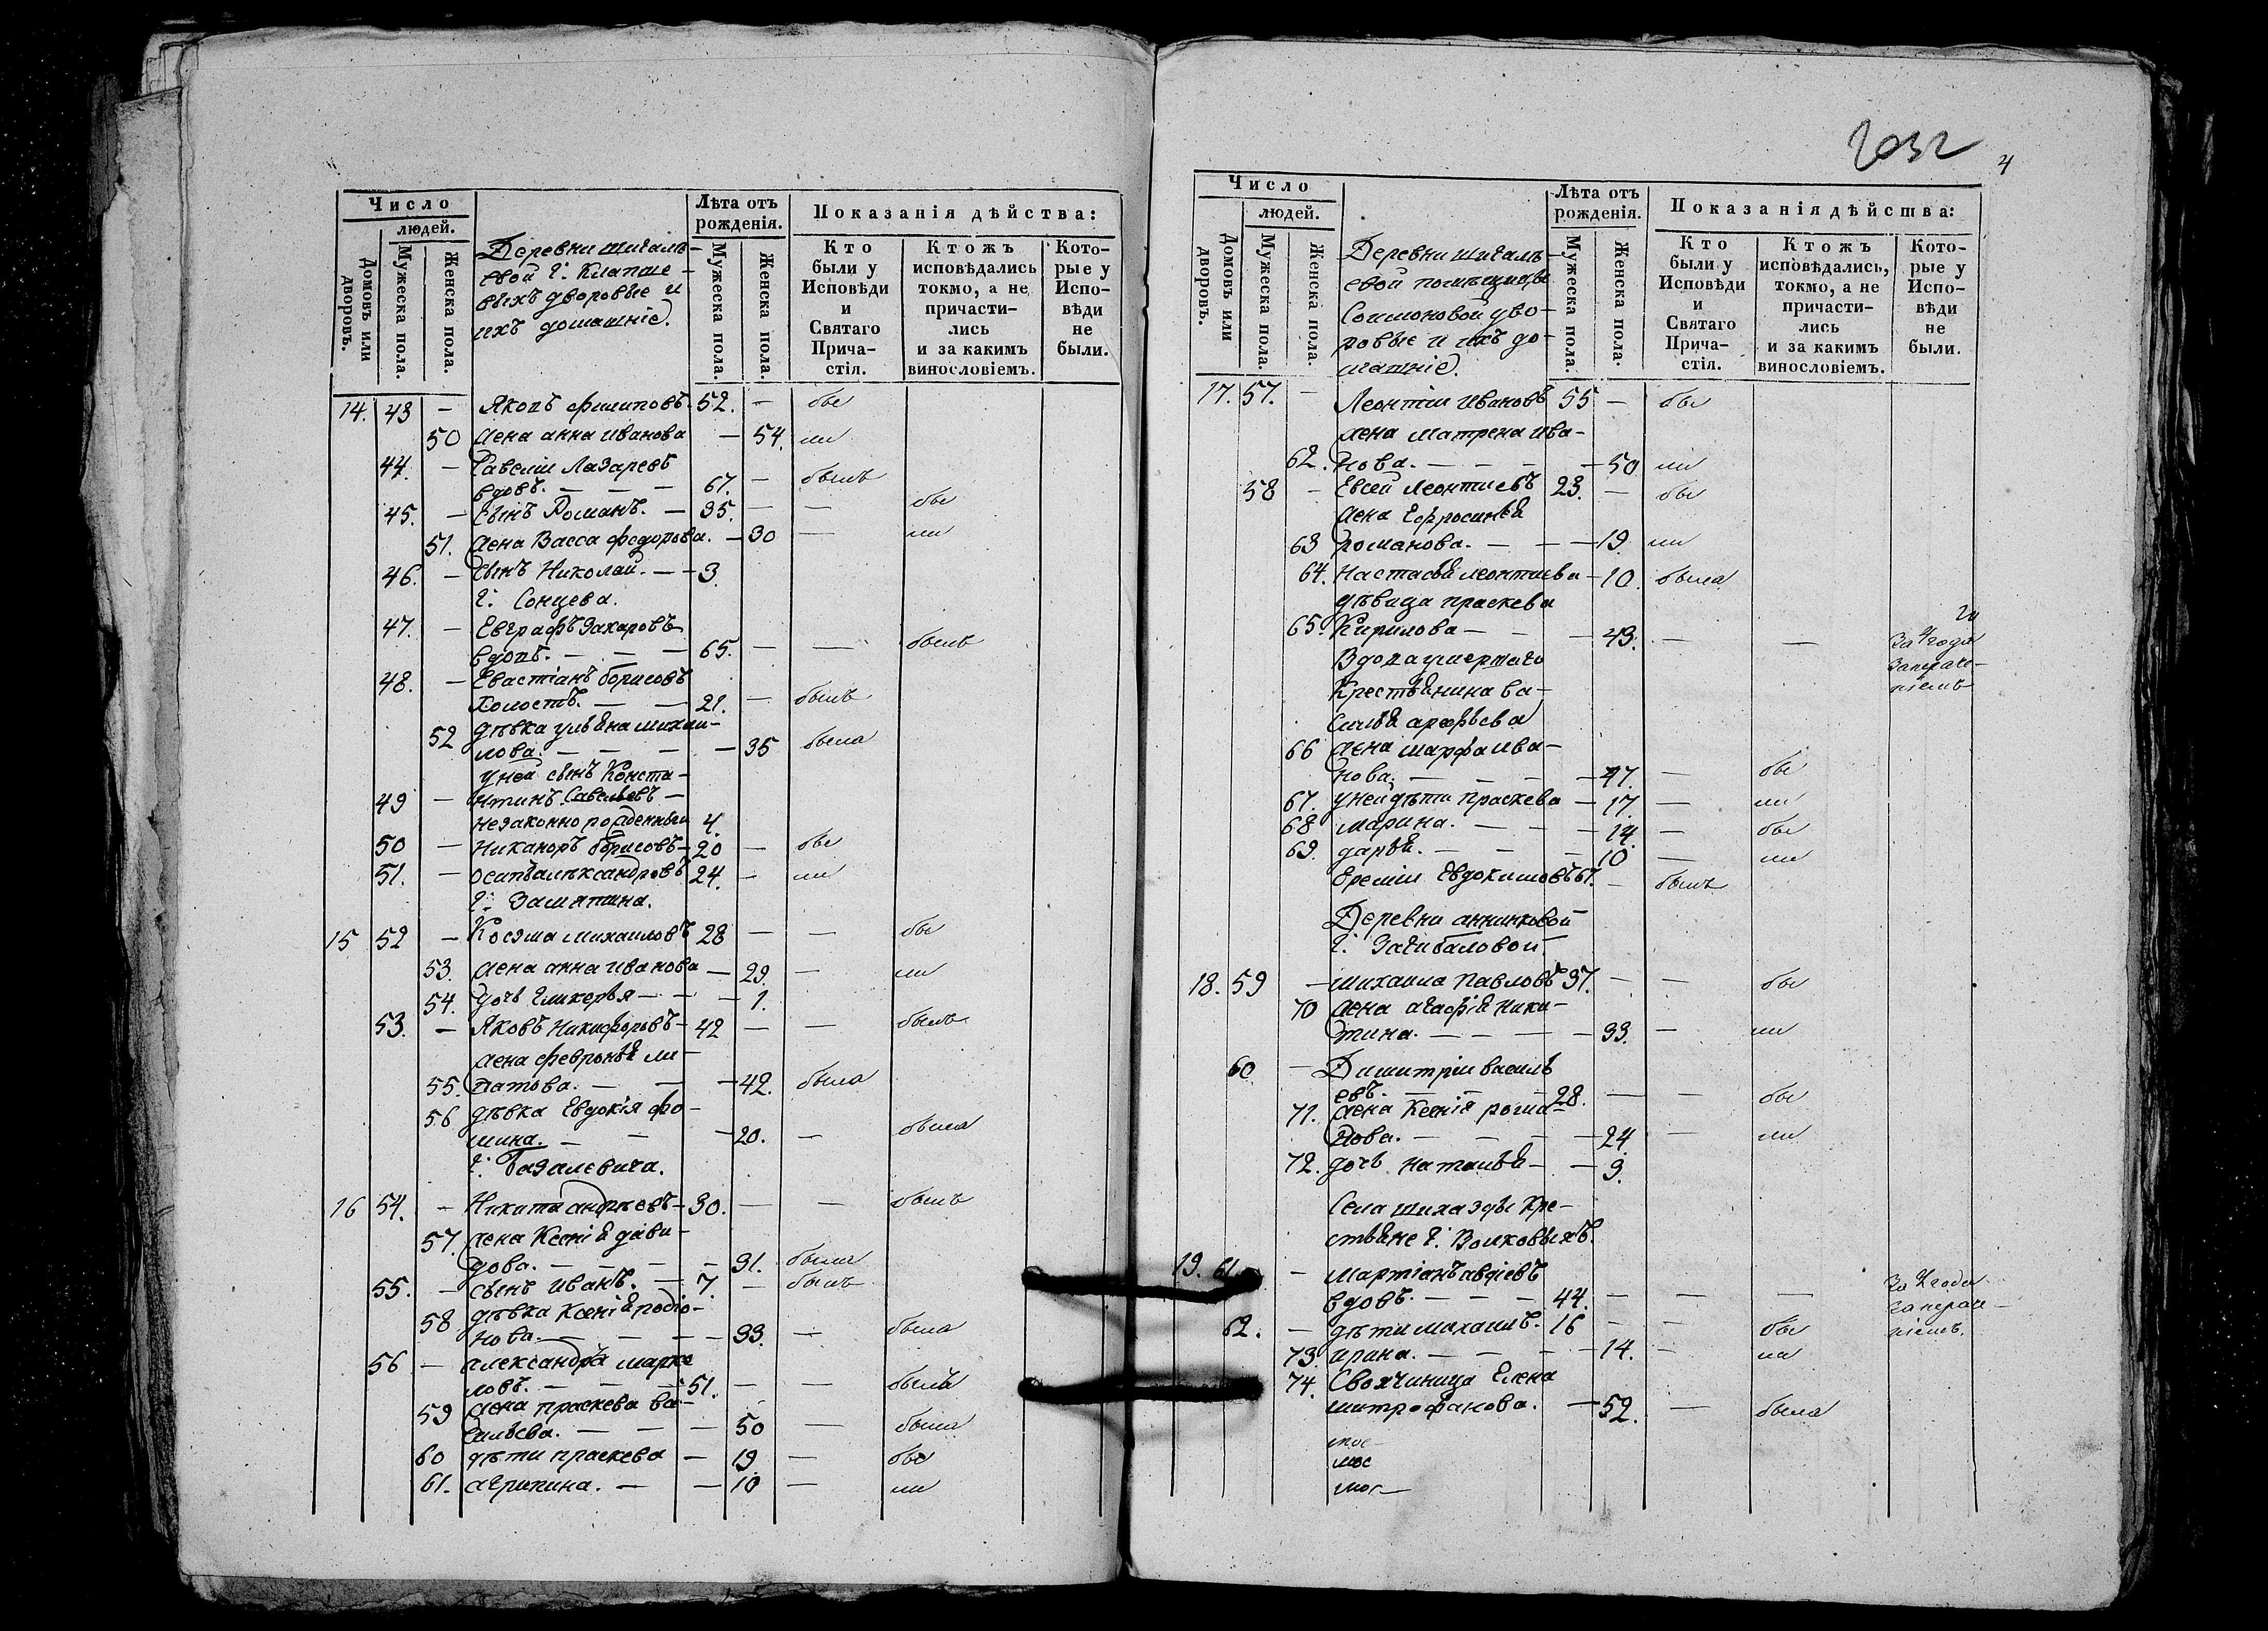 Число
людей.
Домовъ или дворовъ.
Мужеска пола.
Женска пола.
Деревни Шигалѣ-
евой г. Клапше-
выхъ дворовые и
ихъ домашніе.
Лѣта отъ
рожденія.
Мужеска пола.
Женска пола.
Показанія дѣйства:
Кто
были у
Исповѣди
и
Святаго
Прича-
стія.
Ктожъ
исповѣдались
токмо, а не
причасти-
лись
и за какимъ
винословіемъ.
Кото-
рые у
Испо-
вѣди
не
были.
14. 43 — Яковъ Филиповъ 52. — бы
50 жена анна Иванова — 54. ли
44. — Савелiи Лазаревъ
вдовъ. — — — 67. — былъ
45. — Сынъ Романъ. — 35. — — бы
51. жена Васса Федорова. — 30 — ли
46. — Сынъ Николай. — — 3.
г. Сонцева.
47. — Евграфъ Захаровъ
вдовъ. — — — 65. — — былъ
48. — Евастіанъ борисовъ
холостъ. — — 21. — былъ
52 дѣвка ульяна михаи-
лова. — — — — 35 была
у ней сынъ Конста-
49 — нтинъ Савельевъ —
незаконно рожденный 4.
50 — Никаноръ борисовъ — 20 — бы
51. — осипъ алѣксандровъ 24. — ли
г. Замятина.
15 52 — Козма михаиловъ 28 — — бы
53. жена анна Иванова — 29. — ли
54. дочь гликерья — — — 1.
53. — Яковъ Никифоровъ — 42 — — былъ
жена февронья ли-
55. патова. — — — 42. была
56 дѣвка Евдокія фо-
мина. — — — 20. — была
г. Базалевича.
16 54. — Никита андрѣевъ — 30. — — былъ
57. жена Ксенія дави-
дова. — — — — 31. была
55. — сынъ Иванъ. — 7. — былъ
58 дѣвка Ксенія родіо-
нова. — — — — 33. — была
56 — александръ марке
ловъ. — — — 51. — — былъ
59 жена праскева ва-
сильева. — — — 50 — была
60 дѣти праскева — 19 — бы
61. агрипина. — — 10 — ли
4
Число
людей.
Домовъ или дворовъ.
Мужеска пола.
Женска пола.
Деревни Шигалѣ-
евой помѣщицы
Соимоновой дво-
ровые и ихъ до-
машніе.
Лѣта отъ
рожденія.
Мужеска пола.
Женска пола.
Показанія дѣйства:
Кто
были у
Исповѣди
и
Святаго
Прича-
стія.
Ктожъ
исповѣдались,
токмо, а не
причасти-
лись
и за какимъ
винословіемъ.
Кото-
рые у
Испо-
вѣди
не
были.
17. 57. — Леонтіи Ивановъ 55 — бы
жена матрена ива-
62. нова. — — — — 50 ли
58 — Евсей Леонтиевъ 23. — бы
жена Ефросинья
63 романова. — — — 19. ли
64. Настасья леонтиева — 10. была
дѣвица праскева
65. Кирилова — — — 43. — — За 4 года
Вдова умершаго
Крестьянина ва-
силья арефьева
66 жена марфа ива-
нова. — — — — 47. — бы
67. у ней дѣти праскева — 17. — ли
68 марина. — — — — 14. — бы
69. дарья. — — — 10 — ли
Еремiи Евдокимовъ 67. — былъ
Деревни анниковой
г. Загибаловой
18. 59 — михаила Павловъ 37. — — бы
70 жена агафія ники-
тина. — — — — 33. — ли
60 — Димитріи василь
евъ. — — — 28. — — бы
71. жена Ксенія рома-
нова. — — — — 24 — ли
72. дочь наталья — — 9.
Села шиха зды кре-
стьяне г. Волковыхъ.
19. 61. — Мартіанъ авдіевъ
вдовъ. — — — 44. — — — За 2 года
62. — дѣти михаилъ. 16 — — бы
73. ирина. — — — — 14. — ла
74. Свояченица Елена
митрофанова. — 52. — была